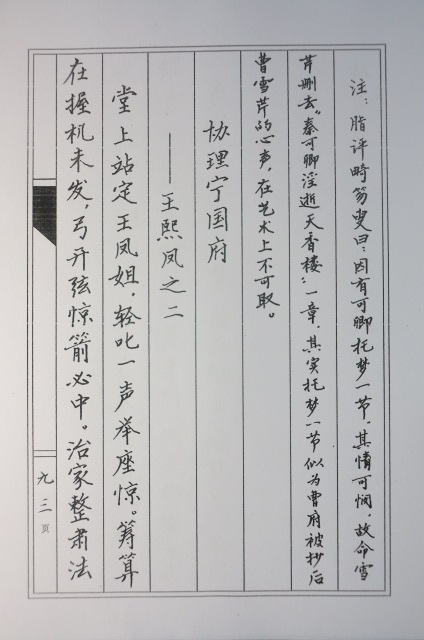 注：脂评畸笏叟曰：因有可卿托梦一节，其情可悯，故命雪
芹删去“秦可卿淫逝天香楼”一章，其实托梦一节似为曹府被抄后
曹雪芹的心声，在艺术上不可取。
协理宁国府
——王熙凤之二
堂上站定王凤姐，轻叱一声举座惊。筹算
在握机未发，弓开弦惊箭必中。治家整肃法
九三页